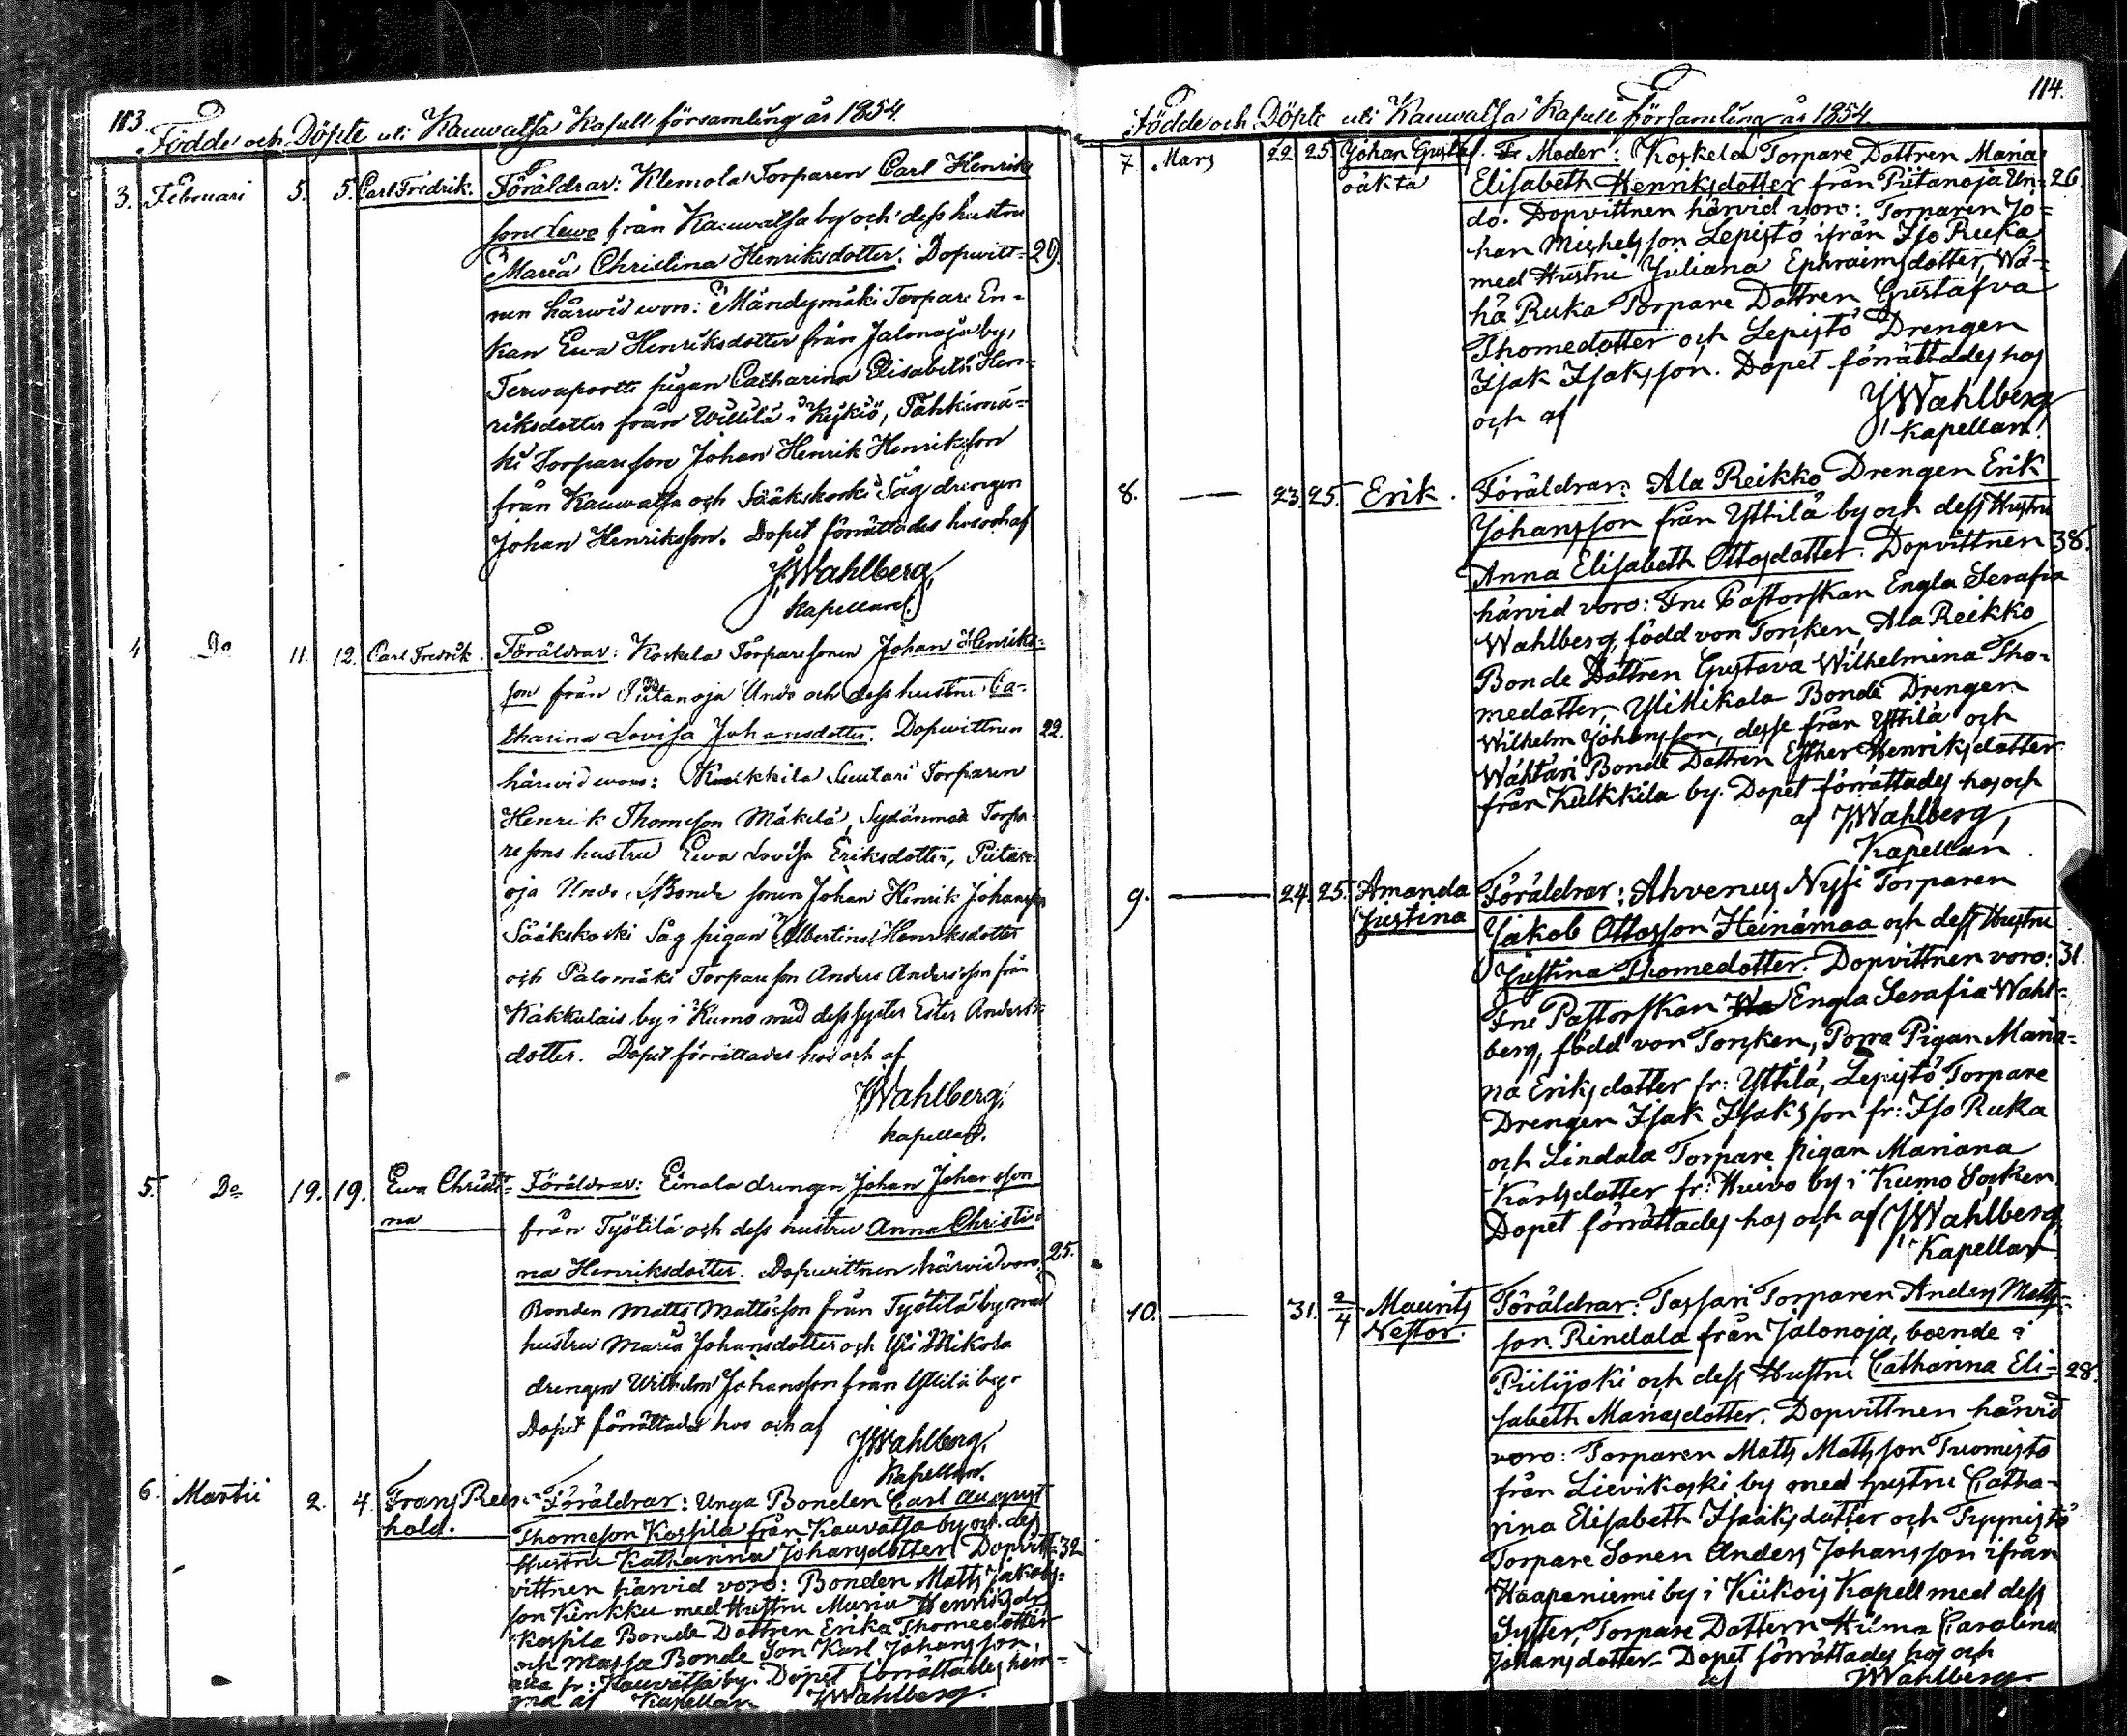 113.
Födde och Döpte uti Kauwatsa Kapell församling år 1854.
3. Februari 5. 5. Carl Fredrik. Föräldrar: Klemola Torparen Carl Henriks
son Lewo från Kauwatsa by och dess hustru
Maria Christina Henriksdotter. Dopwitt= 29.
nen härwid woro: Mändymäki Torpare En-
kan Ewa Henriksdotter från Jalonoja by,
Terwaportti pigan Catharina Elisabeth Hen-
riksdotter från Willilä i Kjikiö, Tahkimä-
ki Torpareson Johan Henrik Henriksson
från Kauwatsa och Sääkskoski Såg drengen
Johan Henriksson. Dopet förrättades hos och af
J Wahlberg,
kapellan.
4 Do 11. 12. Carl Fredrik. Föräldrar: Koskela Torparesonen Johan Henriks-
son från Piitanoja Undo och dess hustru Ca-
tharina Lovisa Johansdotter. Dopwittnen 22.
härwid woro: Kuikkila Suutari Torparen
Henrik Thomeson Mäkelä, Sydänmaa Torpa-
resons hustru Ewa Lovisa Eriksdotter, Piitan-
oja Undo Bonde sonen Johan Henrik Johansson
Sääkskoski Såg pigan Albertina Henriksdotter
och Palomäki Torpareson Anders Andersson från
Kakkulais by i Kumo med dess syster Ester Anders-
dotter. Dopet förrättades hos och af
J Wahlberg,
kapellan.
5. Do 19. 19. Ewa Christi- Föräldrar: Einola drengen Johan Johansson
na från Työtilä och dess hustru Anna Christi-
na Henriksdotter. Dopwittnen härvid voro 25.
Bonden Matts Mattsson från Työtilä by med
hustru Maria Johansdotter och Yli Mikola
drengen Wilhelm Johansson från Yttilä by.
Dopet förrättades hos och af
J Wahlberg,
Kapellan.
6. Martii 2. 4. Frans Rein- Föräldrar: Unga Bonden Carl August
hold. Thomeson Kossila från Kauvatsa by och dess
Hustru Katharina Johansdotter. Dopvitt= 32
vittnen härvid voro: Bonden Matts Jakobs-
son Kinkku med Hustru Maria Henriksdr
Kossila Bonde Dottren Erika Thomedotter
och Massa Bonde Son Karl Johansson,
alla fr: Kauvatsa by. Dopet förrättades hem-
ma af Kapellan J Wahlberg.
114.
Födde och Döpte uti Kauwatsa Kapell församling år 1854
7 Mars 22 25 Johan Gustaf. Moder: Koskela Torpare Dottren Maria
oäkta Elisabeth Henriksdotter från Piitanoja Un- 26.
do. Dopvittnen härvid voro: Torparen Jo=
han Michelsson Lepistö ifrån Iso Ruka
med Hustru Juliana Ephraimsdotter, Wä-
hä Ruka Torpare Dottren Gustafva
Thomedotter och Lepistö Drengen
Isak Isaksson. Dopet förrättades hos
och af J Wahlberg
Kapellan.
8. — 23. 25. Erik. Föräldrar: Ala Reikko Drengen Erik
Johansson från Yttilä by och dess Hustru
Anna Elisabeth Ottosdotter. Dopvittnen 38.
härvid voro: Fru Pastorskan Engla Serafia
Wahlberg, född von Torcken, Ala Reikko
Bonde Dottren Gustava Wilhelmina Tho-
medotter, Yli Mikola Bonde Drengen
Wilhelm Johansson, desse från Yttilä och
Wähtäri Bonde Dottren Esther Henriksdotter
från Kulkkila by. Dopet förrättades hos och
af J Wahlberg,
Kapellan.
9. — 24. 25. Amanda Föräldrar: Ahvenus Nysi Torparen
Justina Jakob Ottosson Heinämaa och dess Hustru
Justina Thomedotter. Dopvittnen voro: 31.
Fru Pastorskan Engla Serafia Wahl-
berg, född von Torcken, Porra Pigan Maria-
na Eriksdotter fr: Yttilä, Lepistö Torpare
Drengen Isak Isaksson fr: Iso Ruka
och Lindala Torpare pigan Mariana
Karlsdotter fr: Huivo by i Kumo Socken.
Dopet förrättades hos och af J Wahlberg
Kapellan
10. — 31. 2/4 Maurits Föräldrar: Tassari Torparen Anders Matts-
Nestor. son Rindala från Jalonoja, boende i
Piilijoki och dess Hustru Catharina Eli- 28.
sabeth Mariasdotter. Dopvittnen härvid
voro: Torparen Matts Mattsson Tuomisto
från Lievikoski by med hustru Catha-
rina Elisabeth Isaaksdotter och Pyynistö
Torpare Sonen Anders Johansson ifrån
Haapaniemi by i Kiikois Kapell med dess
Syster, Torpare Dottern Hilma Carolina
Johansdotter. Dopet förrättades hos och
af J Wahlberg